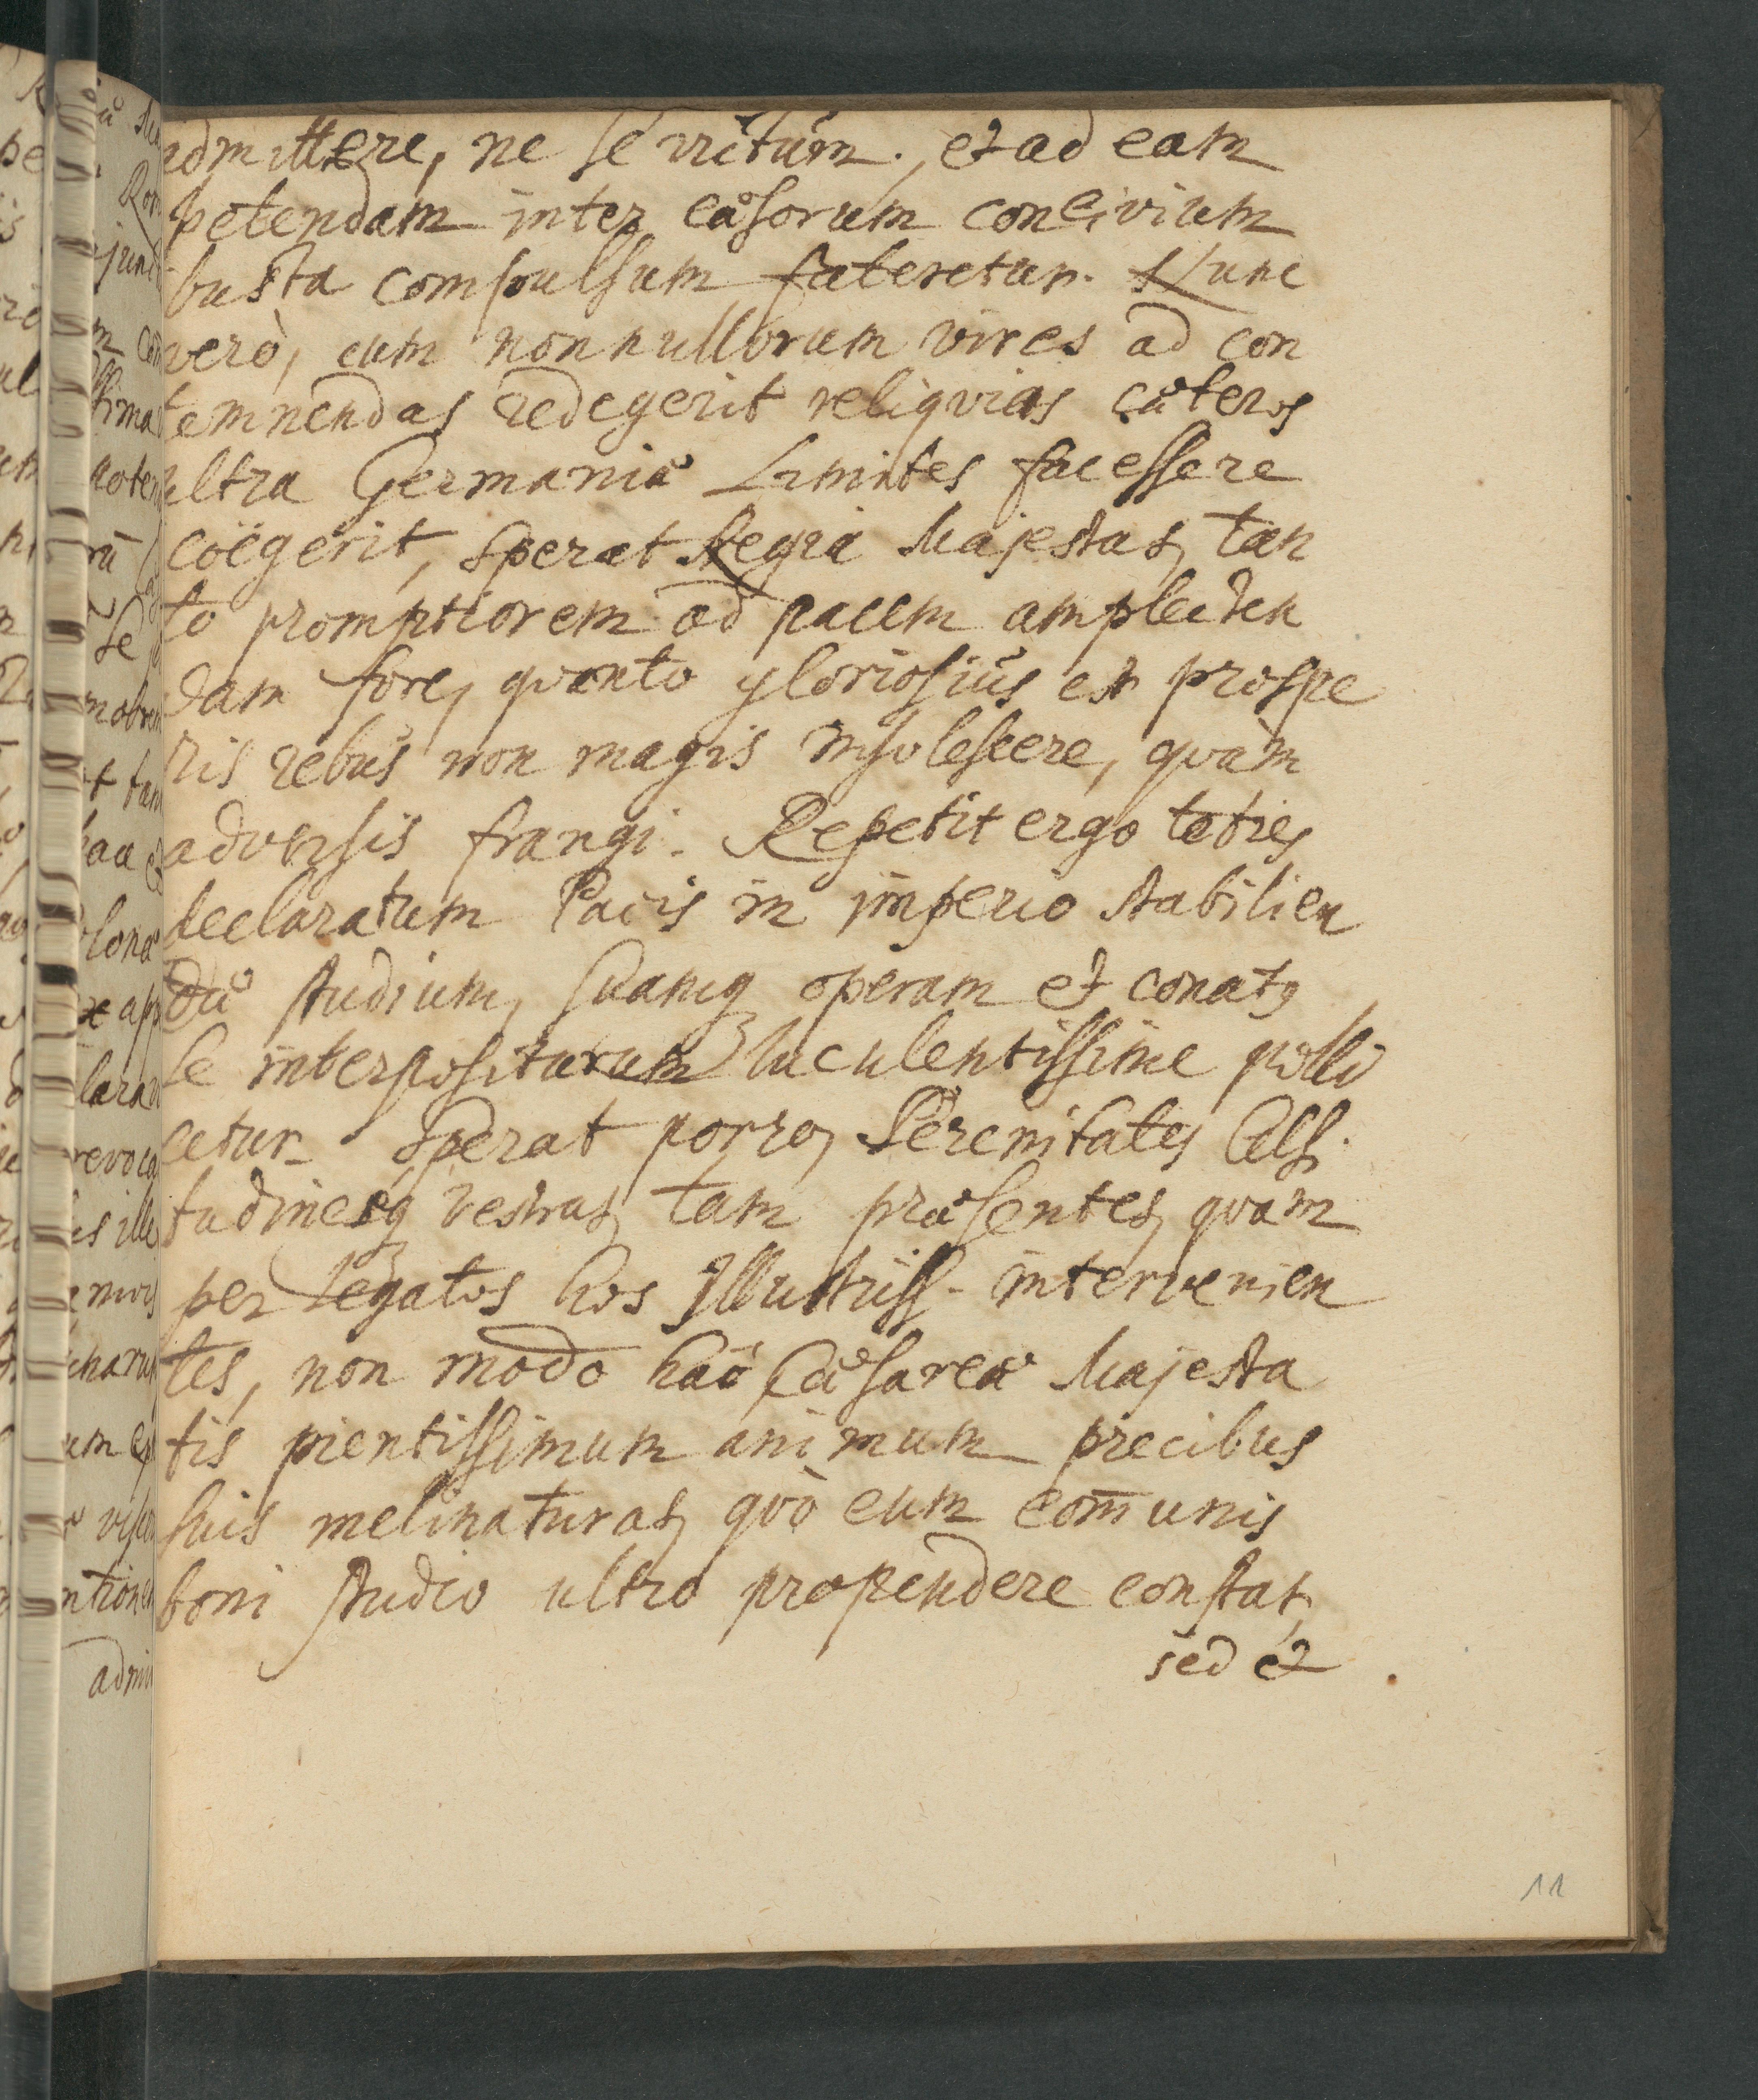 admittere, ne se victum, et ad eam
petendam inter cæsorum concivium
busta compulsum fateretur. Nunc
verò, cum nonnullorum vires ad con
temnendas redegerit reliqvias cæteros
ultra Germaniæ Limites facessere
coëgerit, sperat Regia Majestas, tan
to promptiorem ad pacem amplecten
dam fore, qvanto gloriosius est prospe
ris rebus non magis insolescere, qvàm
adversis frangi. Repetit ergo toties
declaratum Pacis in imperio stabilien
dæ studium, suamq operam et conatus
se interpositurum luculentissime polli
cetur. Sperat porro, Serenitates Cels.
tudinesq vestras, tam præsentes, qvam
per Legatos hos Illustriss. intervenien
tes, non modo hac Cæsareæ Majesta
tis pientissimum animum precibus
suis inclinaturas, qvò eum com̄unis
boni studio ultro propendere constat,
sed et
11